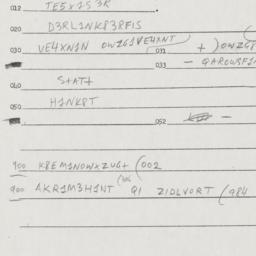 012 TE5X1S3R
020 D3RL1NKP3RFIS
030 VE4XN1N OWZG1VE4XNT 031 + ) OWZG8
033 - QAROWSF1
040 S+AT+
050 H1NKPT
052 -
900 KREM1NOWXZUG+ (002
900 AKR1M3H1NT QI ZIDLVORT (984